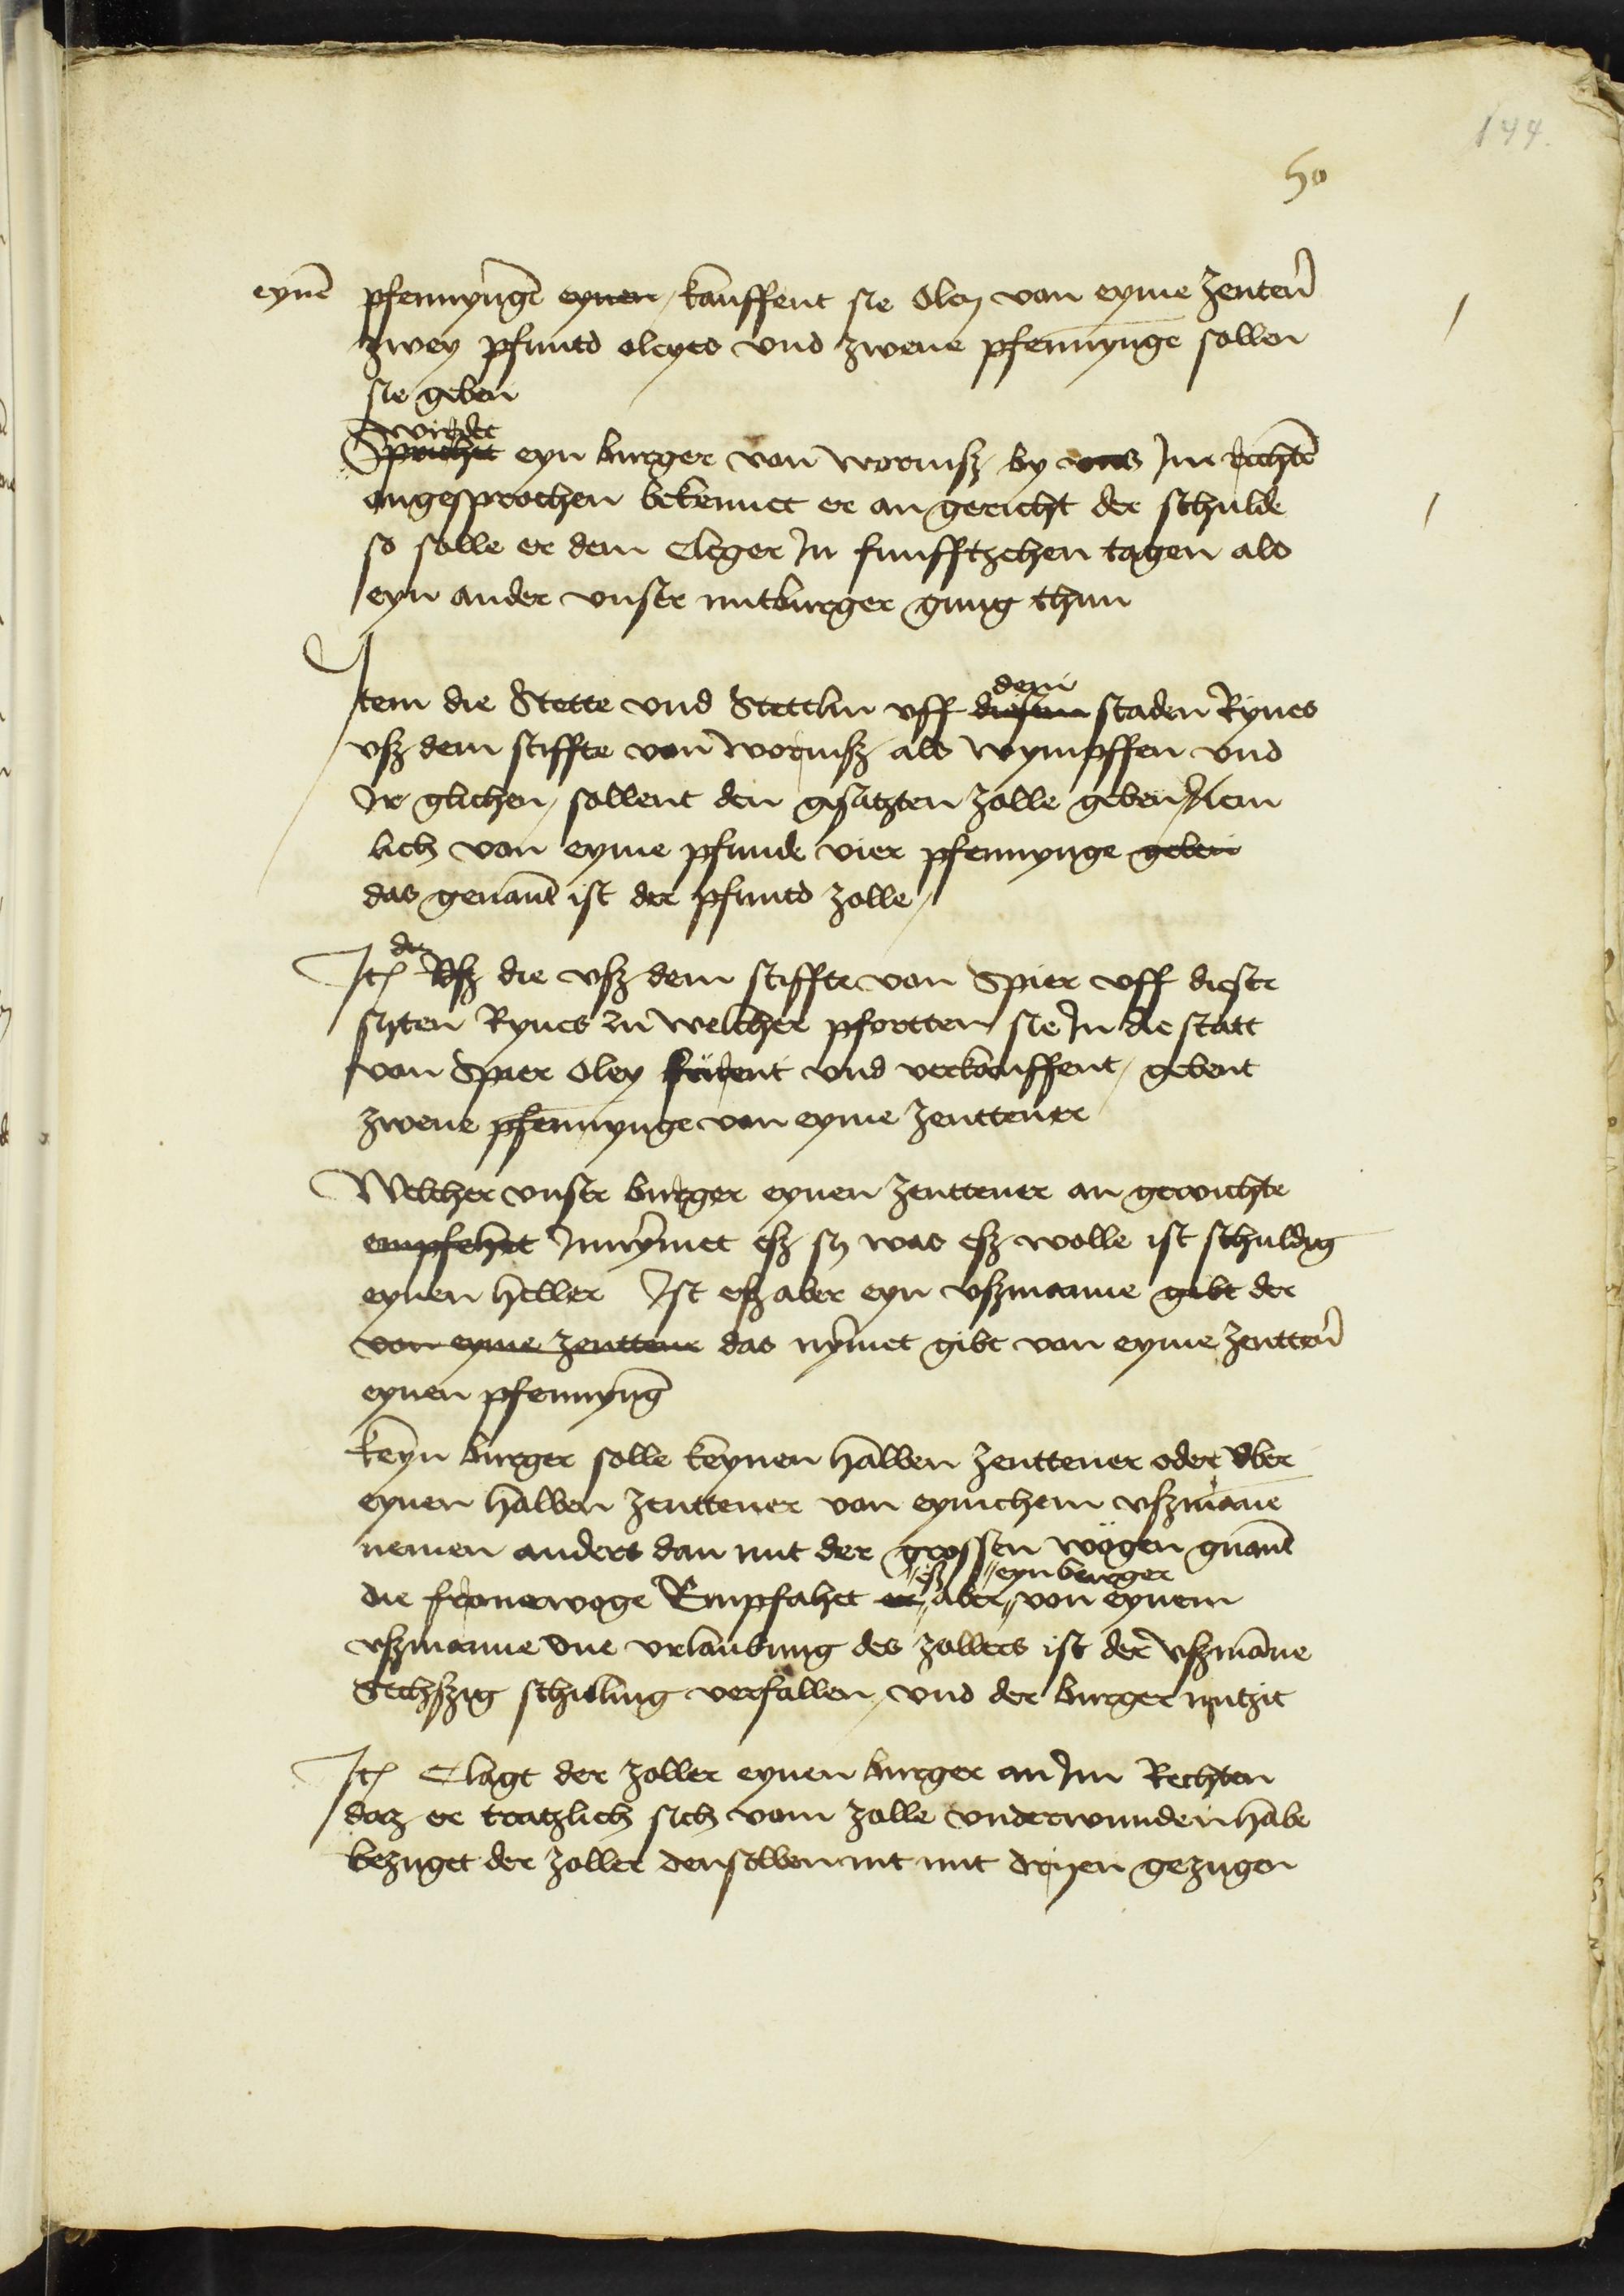 144.
50
eynē pfennyngē eynen / kauffent sie Oley von eyme Zentenʼ
zwey pfuntd oleyes vnd zwene pfennynge sollen
sie geben
wirdet
Sprichet eyn burger von wormſz by vns Im rechtē
angesprochen bekennet er an gericht der schulde
so solle er dem Cleger In funfftzehen tagen als
eyn ander vnser mitburger gnug thun
Item die Stette vnd Stettlin vff diesem dem staden Rynes
vſz dem stiffte von wormſz als wympffen vnd
Ir glichen / sollent den gesatzten zolle geben / Nem
lich von eyme pfunde vier pfennynge geben
das genant ist der pfuntd zolle /
Itē die vſz dem stiffte von Spier vff dieser
syten Rynes zu welcher pfortten sie In die statt
von Spier Oley furent vnd verkouffent / gebent
zwene pfennynge von eyme zenttener
Welcher vnser burger eynen zenttener an gewichte
empfehet Innymet eſz sy was eſz wolle ist schuldig
eynen heller Ist eſz aber eyn vſzmanne gibt der
von eyme zenttener das nymet gibt von eyme zenttenʼ
eynen pfennyng
Keyn burger solle keynen halben zenttener oder vber
eynen halben zenttener von eynichem vſzmāne
nemen anders dan mit der grossen wogen gnant
eſz eyn burger
die fronewoge Empfahet er aber von eynem
vſzmanne one vrlaubung des zollers ist der vſzmāne
Sechſzig schilling verfallen / vnd der burger nutzit
Itē Clagt der zoller eynen burger an Im Rechten
daz er tratzlich sich vom zolle vnderwunden habe
bezuget der zoller denselben nit mit dryen gezugen